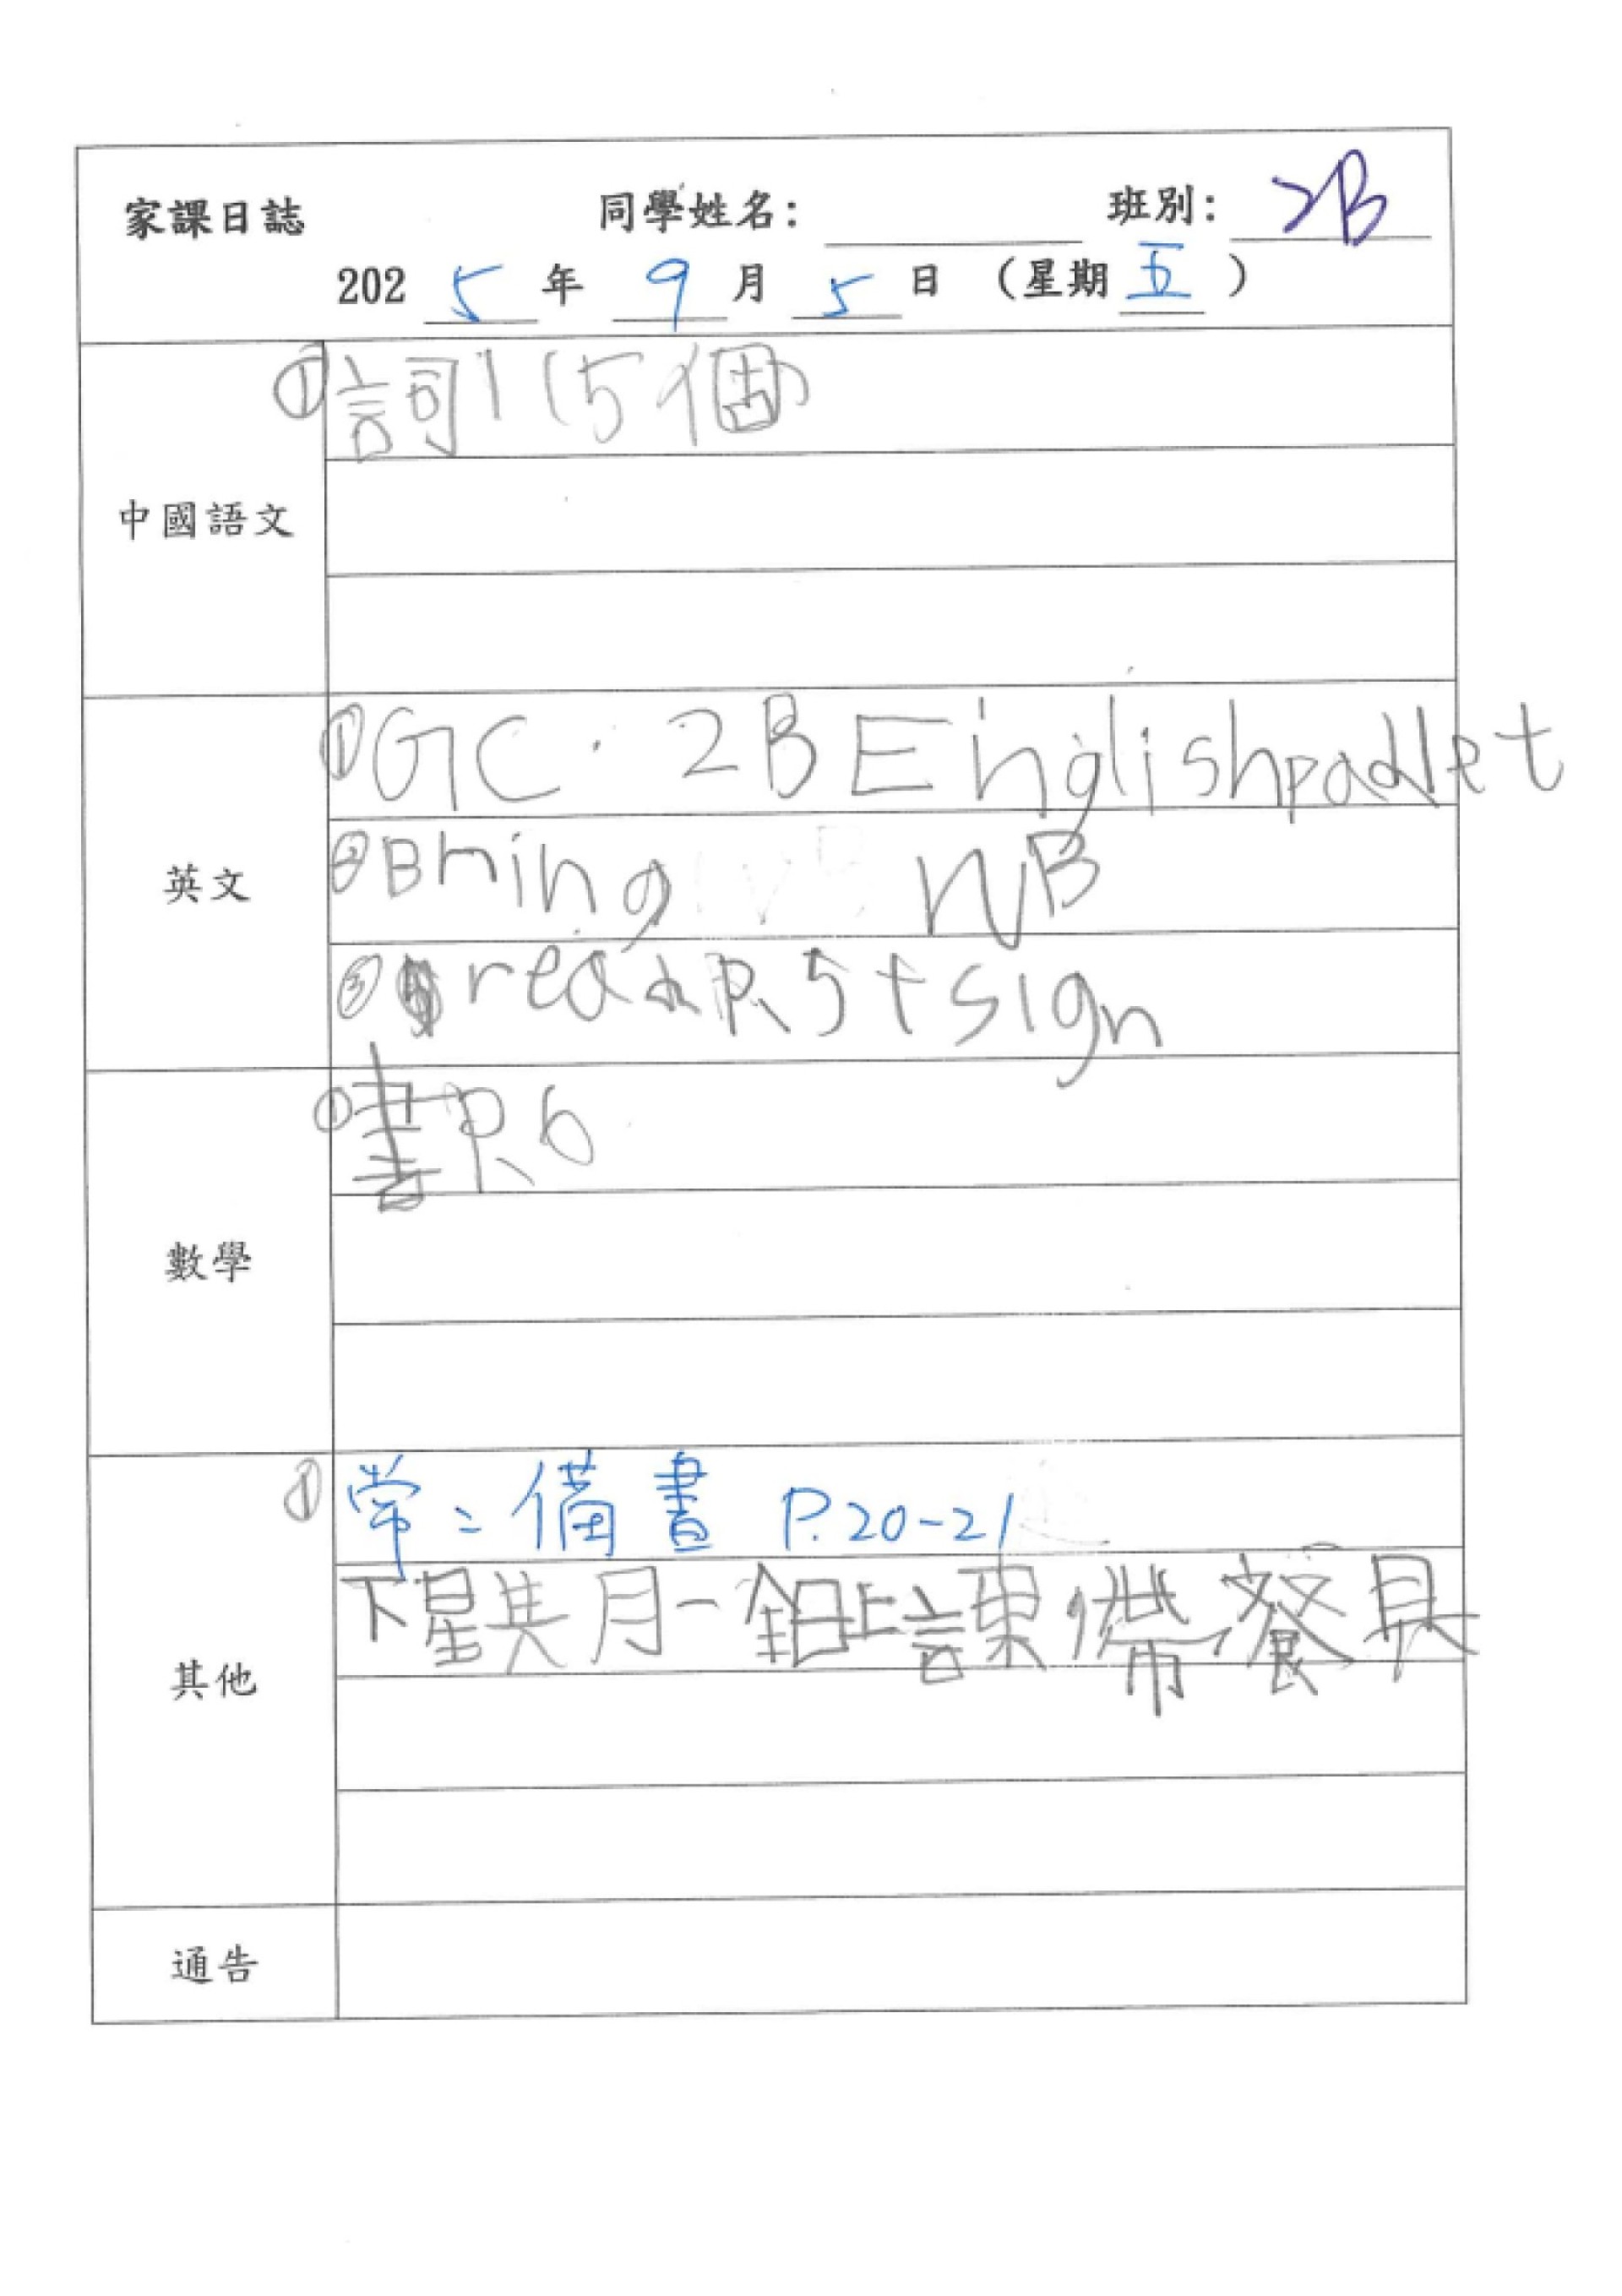 家課日誌 同學姓名： 班別：2B
2025年9月5日（星期五）
①詞1(5個)
中國語文
①GC．2B Englishpadlet
②Bring NB
英文
③read P.5+sign
①書P.6
數學
①常：備書 P.20-21
下星其月一 上課 帶餐具
其他
通告